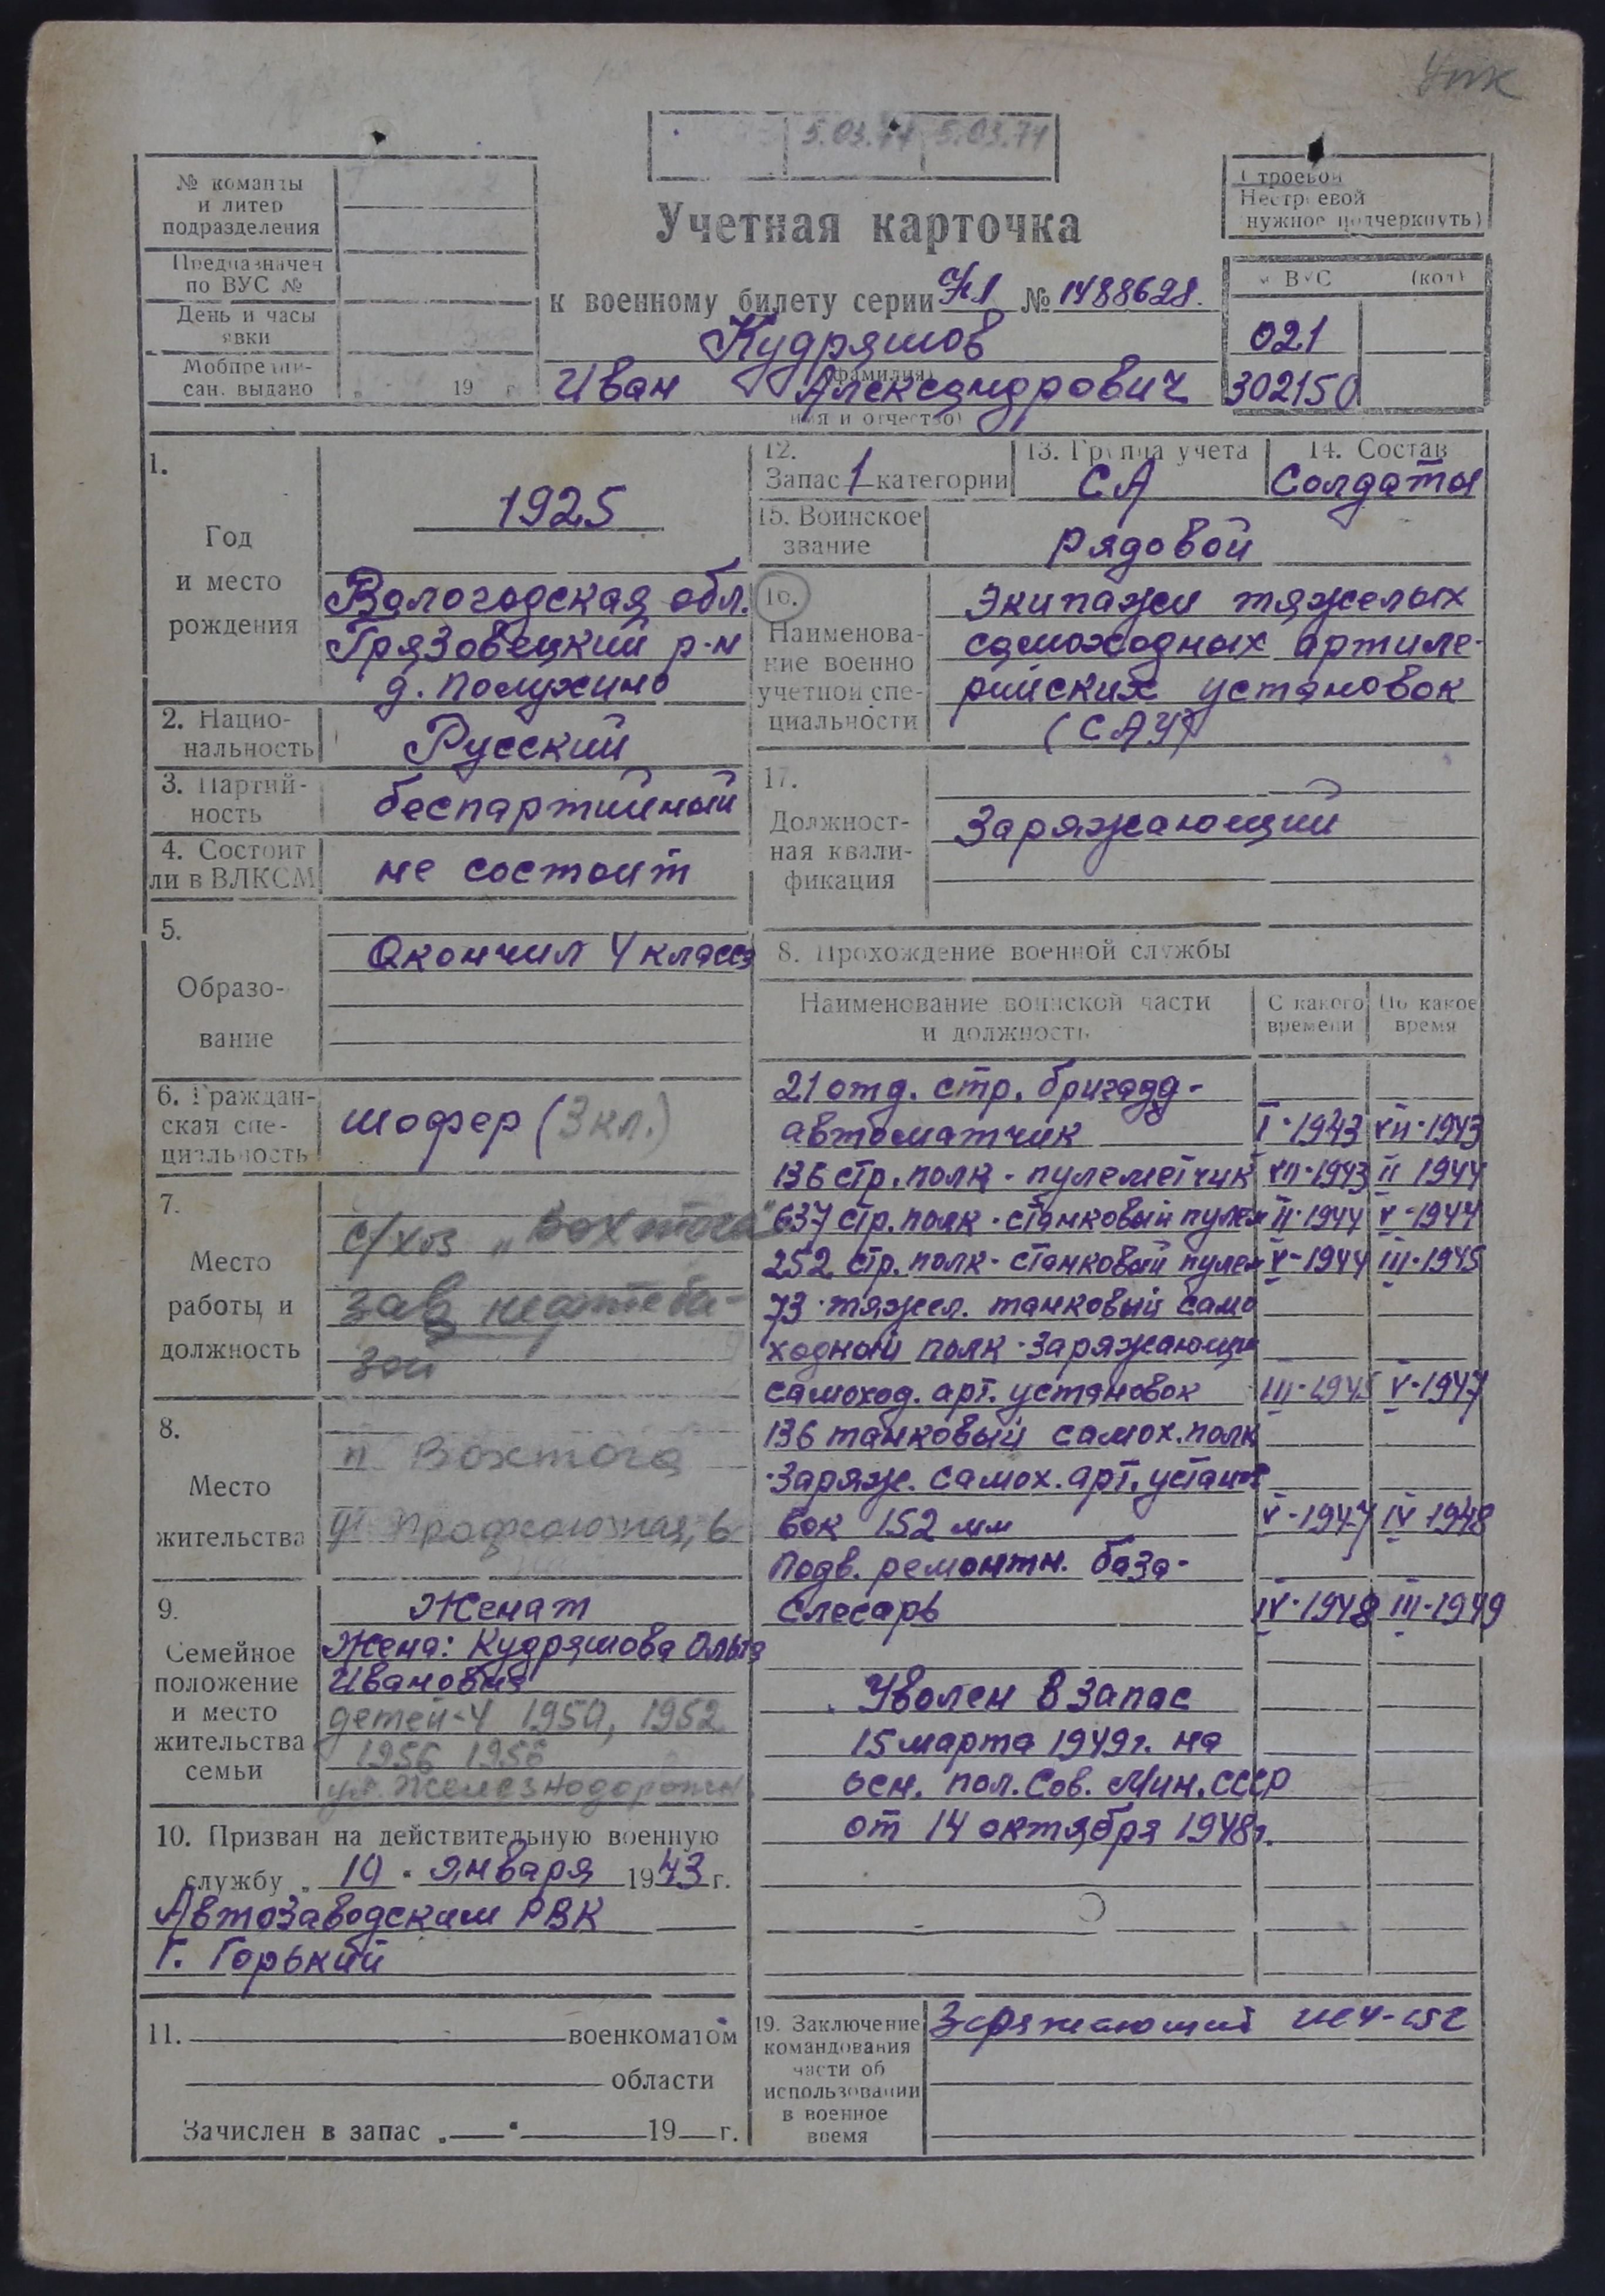 5.03.74 5.03.74
№ команды
и литер
подразделения
Предназначен
по ВУС №
День и часы
явки
Мобпредпи-
сан. выдано
19 г
Учетная карточка
к военному билету серии № 1488628.
Кудряшов
(фамилия)
Иван Александрович
имя и отчество)
Строевой
Нестроевой
нужное подчеркнуть)
ВУС (код)
021
302150
1.
Год
и место
рождения
1925
Вологодская обл.
Грязовецкий р-н
д. Полужино
2. Нацио-
нальность
Русский
3. Партий-
ность
беспартийный
4. Состоит
ли в ВЛКСМ
не состоит
5.
Образо-
вание
Окончил 4 класса
6. Граждан-
ская спе-
циальность
шофер (3 кл.)
7.
Место
работы и
должность
с/хоз „Вохтога"
зав нефтеба-
зой
8.
Место
жительства
п Вохтога
ул Профсоюзная, 6
9.
Семейное
положение
и место
жительства
семьи
Женат
Жена: Кудряшова Ольга
Ивановна
детей-4 1950, 1952
1956 1956
ул. Железнодорожн.
10. Призван на действительную военную
службу „ 10 " января 1943 г.
Автозаводским РВК
г. Горький
11. военкоматом
области
Зачислен в запас „ " 19 г.
12.
Запас 1 категории
13. Группа учета
СА
14. Состав
Солдаты
15. Воинское
звание
рядовой
16.
Наименова-
ние военно
учетной спе-
циальности
Экипажи тяжелых
самоходных артиле-
рийских установок
(САУ)
17.
Должност-
ная квали-
фикация
Заряжающий
8. Прохождение военной службы
Наименование воинской части
и должность
С какого
времени
По какое
время
21 отд. стр. бригада-
автоматчик I·1943 VII·1943
136 стр. полк - пулеметчик VII·1943 II 1944
637 стр. полк - станковый пулем II·1944 V-1944
252 стр. полк - станковый пулем V-1944 III·1945
73 тяжел. танковый само
ходный полк - заряжающий
самоход. арт. установок III·1945 V·1947
136 танковый самох. полк
·заряж. самох. арт. устано
вок 152 мм V-1947 IV 1948
Подв. ремонтн. база-
слесарь IV·1948 III·1949
Уволен в запас
15 марта 1949г. на
осн. пол. Сов. Мин. СССР
от 14 октября 1948г.
19. Заключение
командования
части об
использовании
в военное
время
Заряжающий ИСУ-152